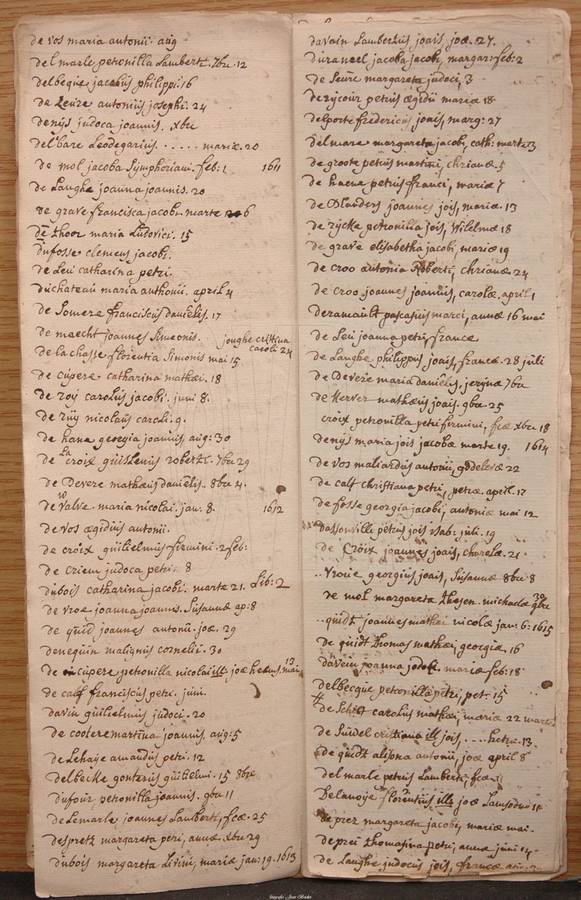 de vos maria antonii. aug
delmarle petronilla Lamberti. 7bre. 12
delbeque jacobus philippi. 16
de Leuze antonius josephi. 24
denijs judoca joannis. xbre
delbare Leodegarius . . . . . mariæ. 20
de mol jacoba Symphoriani. feb: 1 1611
de Langhe joanna joannis. 20
de grave francisca jacobi. marte 6
de thoor maria Ludovici. 15
dufosse clemens jacobi.
de Leu catharina petri.
duchateau maria anthonii. april 4
de Somere franciscus danielis. 17
de maecht joannes Simeonis. jonghe cristina
de la chasse florentia Simonis mai 15 caroli 24
de cupere catharina mathæi. 18
de roy carolus jacobi. juni 8.
de ruy nicolaus caroli. 9.
de hane georgia joannis, aug: 30
de La croix guislenus roberti. 7bre 29
de Devere mathæus danielis. 8bre 4.
de walve maria nicolai. jan: 8. 1612
de vos ægidius antonii.
de croix guilielmus firmini. 2 feb:
de crieu judoca petri. 8
dubois catharina jacobi. marte 21. feb: 2
de vroe joanna joannes. Susannæ ap: 8
de quid joannes antonii. joæ. 29
denequin malignus cornelii. 30
de cupere petronilla nicolai ill, joæ 13 mai
de calf franciscus petri. juni.
davin guilielmus judoci. 20
de cootere martina joannis, aug: 5
de Lehaye amandus petri. 12
delbecke gonterus guilielmi. 15 8bre
dufour petronilla joannis. 9bre 11
de Lemarle joannes Lamberti, fcæ. 25
despretz margareta petri, annæ xbre 29
dubois margareta Livini, mariæ jan: 19. 1613
davain Lambertus joais, joæ. 27.
duraneel jacoba jacobi, margar: feb: 2
de Seure margareta judoci, 3
de rycour petrus ægidii mariæ 18
delporte fredericus joais, marg: 27
delmare margareta jacobi, cath: marte 3
de groote petrus martini, chrianæ. 5
de haene petrus franci, mariæ 7
de Blanders joannes jois, mariæ. 13
de rycke petronilla jois, Wilelmæ 18
de grave elisabetha jacobi, mariæ 19
de croo antonia Roberti, chrianæ 24
de croo joannes joannis, carolæ. april 1
deramault pascasius marci, annæ 16 mai
de Leu joanna petri, francæ
de Langhe philippus joais, francæ. 28 juli
de Devere maria danielis, jerynæ 7bre
de Kerver mathæus joais. 9bre. 25
croix petronilla petri firmini, fcæ xbre 18
denys maria jois jacobæ marte 19. 1614
de vos maliardus antonii, godelevæ 22
de calf christiana petri, petræ. april. 17
de fosse georgia jacobi, antoniæ mai 12
dassonville petrus jois ysab: juli. 19
de Croix joannes joais, charolæ. 21
. . Vroue georgius joais, Susannæ 8bre 8
de mol margareta thesen. michaelæ 9bre 30
. . quidt joannes mathæi nicolæ jan: 6: 1615
de quidt thomas mathæi, georgiæ 16
davein joanna jodoci. mariæ feb: 18
delbecque petronilla petri, pet. 15
de Schilt carolus mathæi, mariæ 22 marte
de Suidel cristiana ill jois, . . . . 13.
de quidt alisona antonii, joæ april 8
del marle petrus Lamberti, fcæ
Delanoije florentius ill, joæ
de prez margareta jacobi, mariæ mai.
de prei thomasina petri, annæ juni 14.
de Langhe judocus jois, francæ